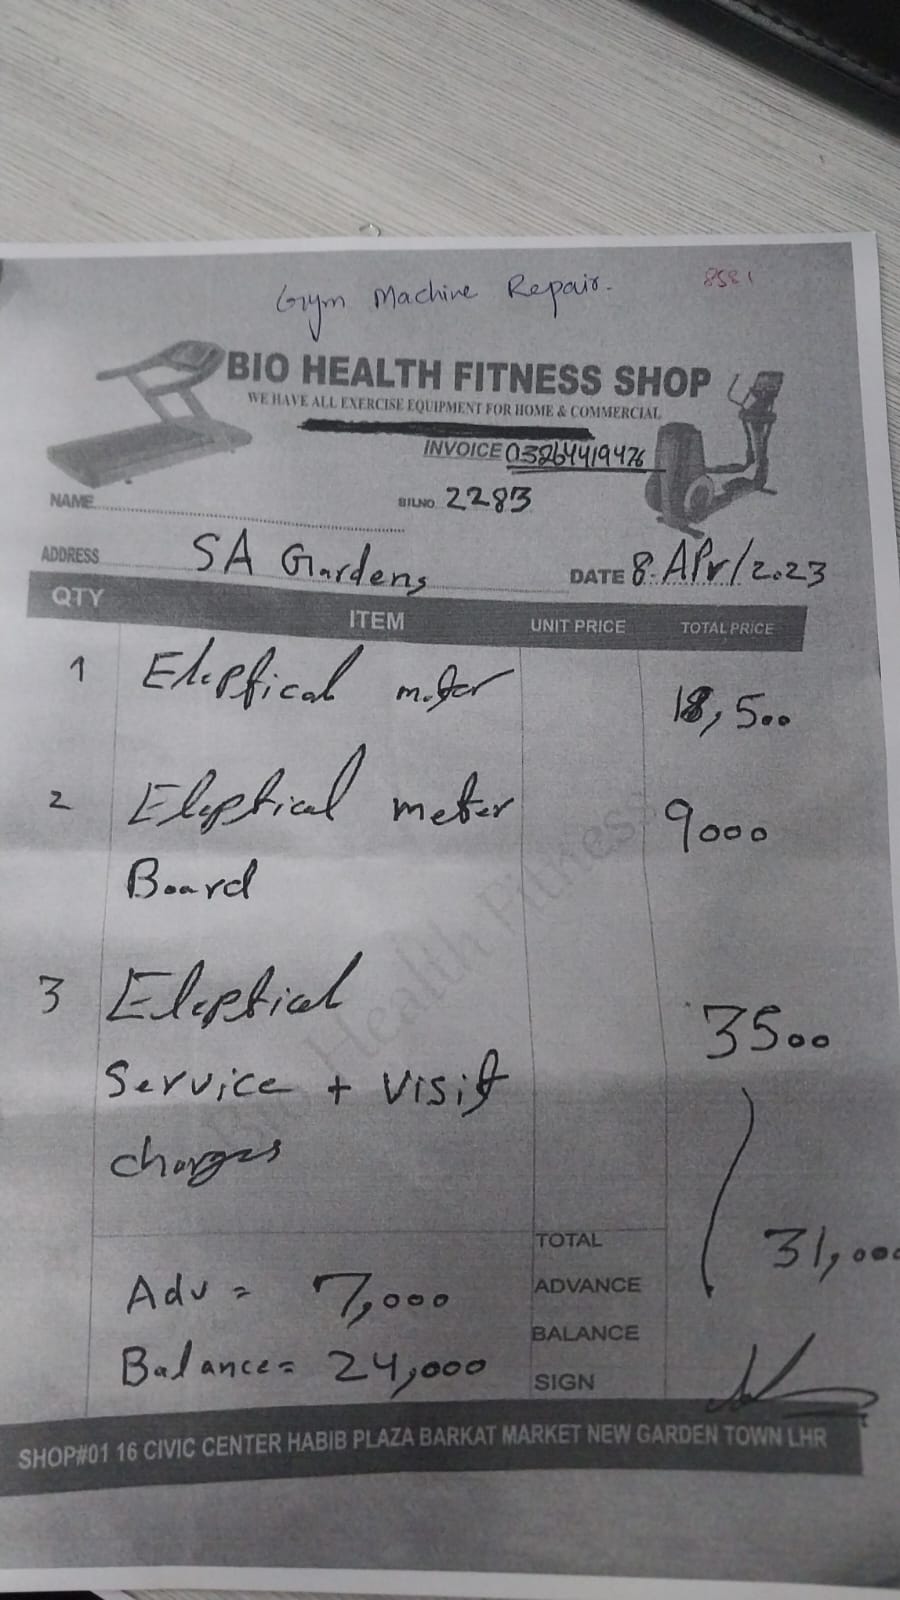 Gym Machine Repair.
8581
BIO HEALTH FITNESS SHOP
WE HAVE ALL EXERCISE EQUIPMENT FOR HOME & COMMERCIAL
INVOICE 03264419476
NAME
BILNO. 2283
ADDRESS SA Gardens
DATE 8.APr/2023
QTY ITEM UNIT PRICE TOTAL PRICE
1 Eleptical motor 18,500
2 Eleptical meter 9000
Board
3 Eleptical 3500
Service + Visit
charges
TOTAL 31,000
Adv = 7,000 ADVANCE
Balance = 24,000 BALANCE
SIGN
SHOP#01 16 CIVIC CENTER HABIB PLAZA BARKAT MARKET NEW GARDEN TOWN LHR
Bio Health Fitness